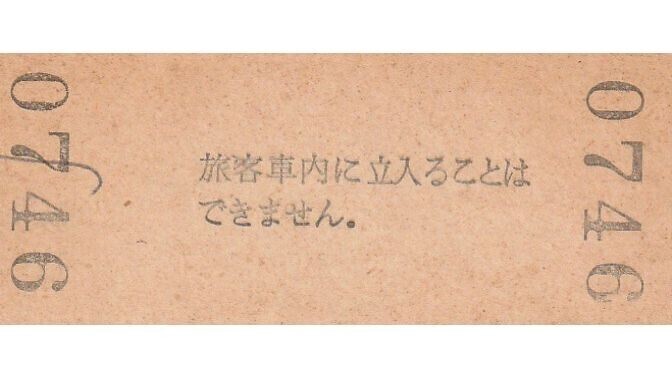 0746
旅客車内に立入ることは
できません。
0746